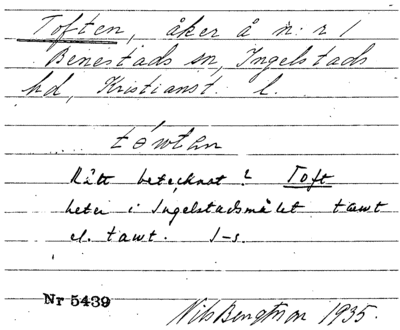 Toften, åker å n:r 1
Benestads sn, Ingelstads
hd, Kristianst. l.
tówtan
Rätt betecknat? Toft
heter i Ingelstadsmålet tawt
el. tawt. I-s.
Nr 5439
Nils Bengtsson 1935.